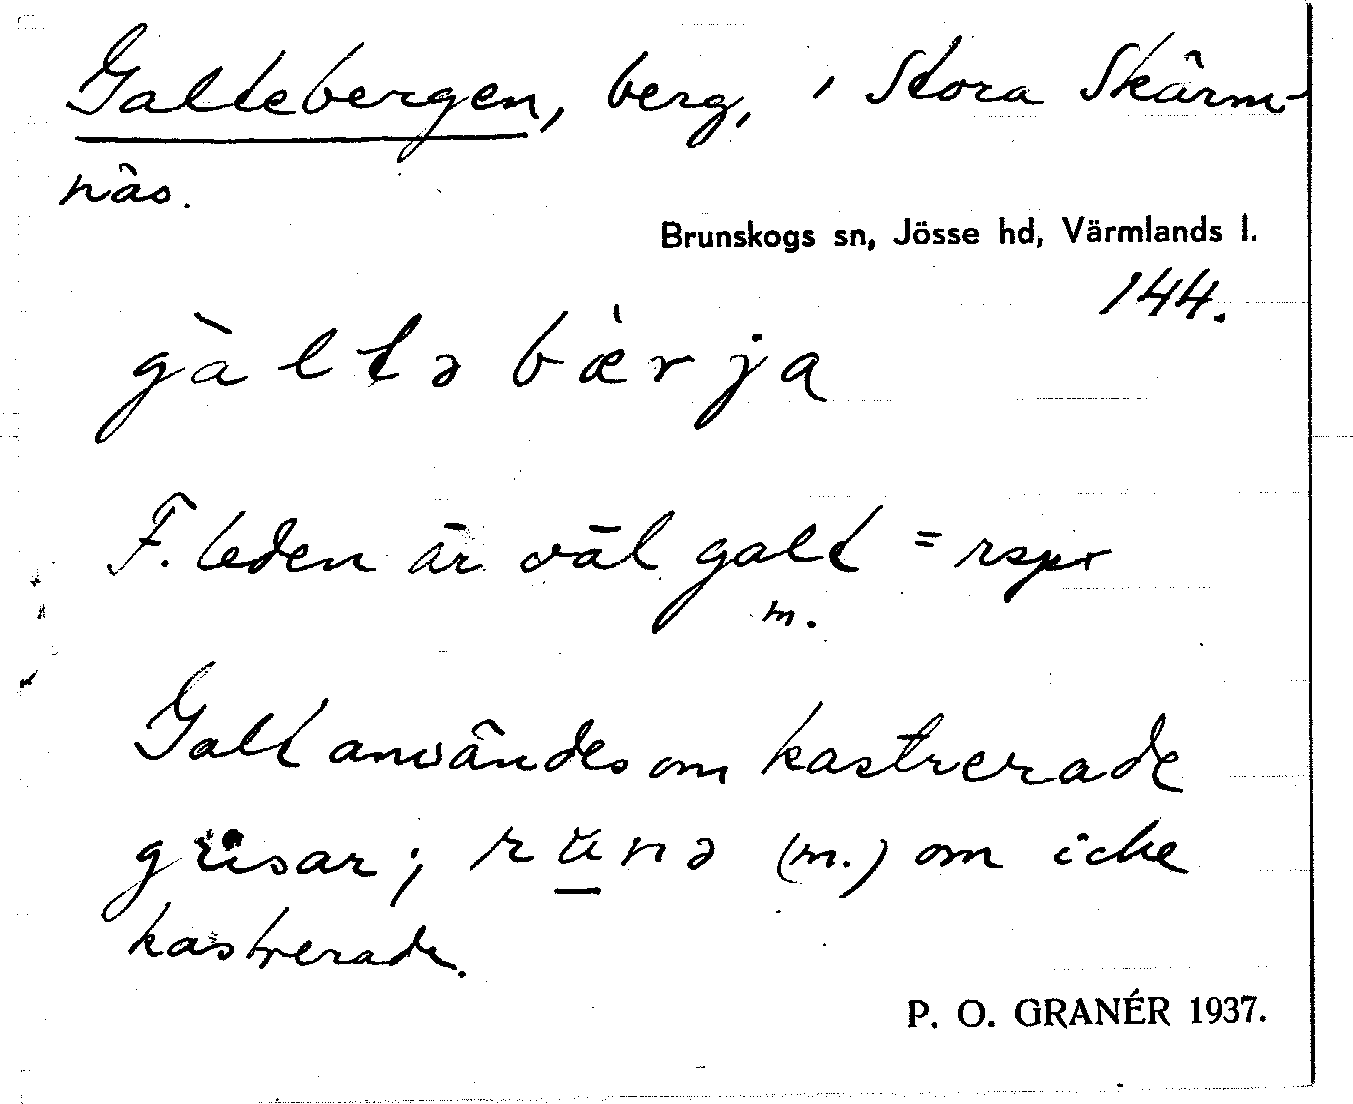 Galtebergen, berg, i Stora Skärm-
näs.
Brunskogs sn, Jösse hd, Värmlands l.
144.
gàltəbærja
F. leden är väl galt = rspr
m.
Galt användes om kastrerade
grisar; ru̲nə (m.) om icke
kastrerade.
P. O. GRANÉR 1937.